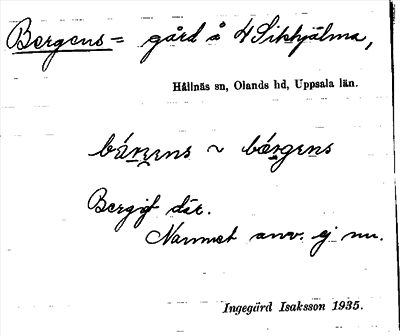 Bergens = gård å 4 Sikhjälma,
Hållnäs sn, Olands hd, Uppsala län.
bárgens ~ bárgens
Bergigt där.
Namnet anv. ej nu.
Ingegärd Isaksson 1935.